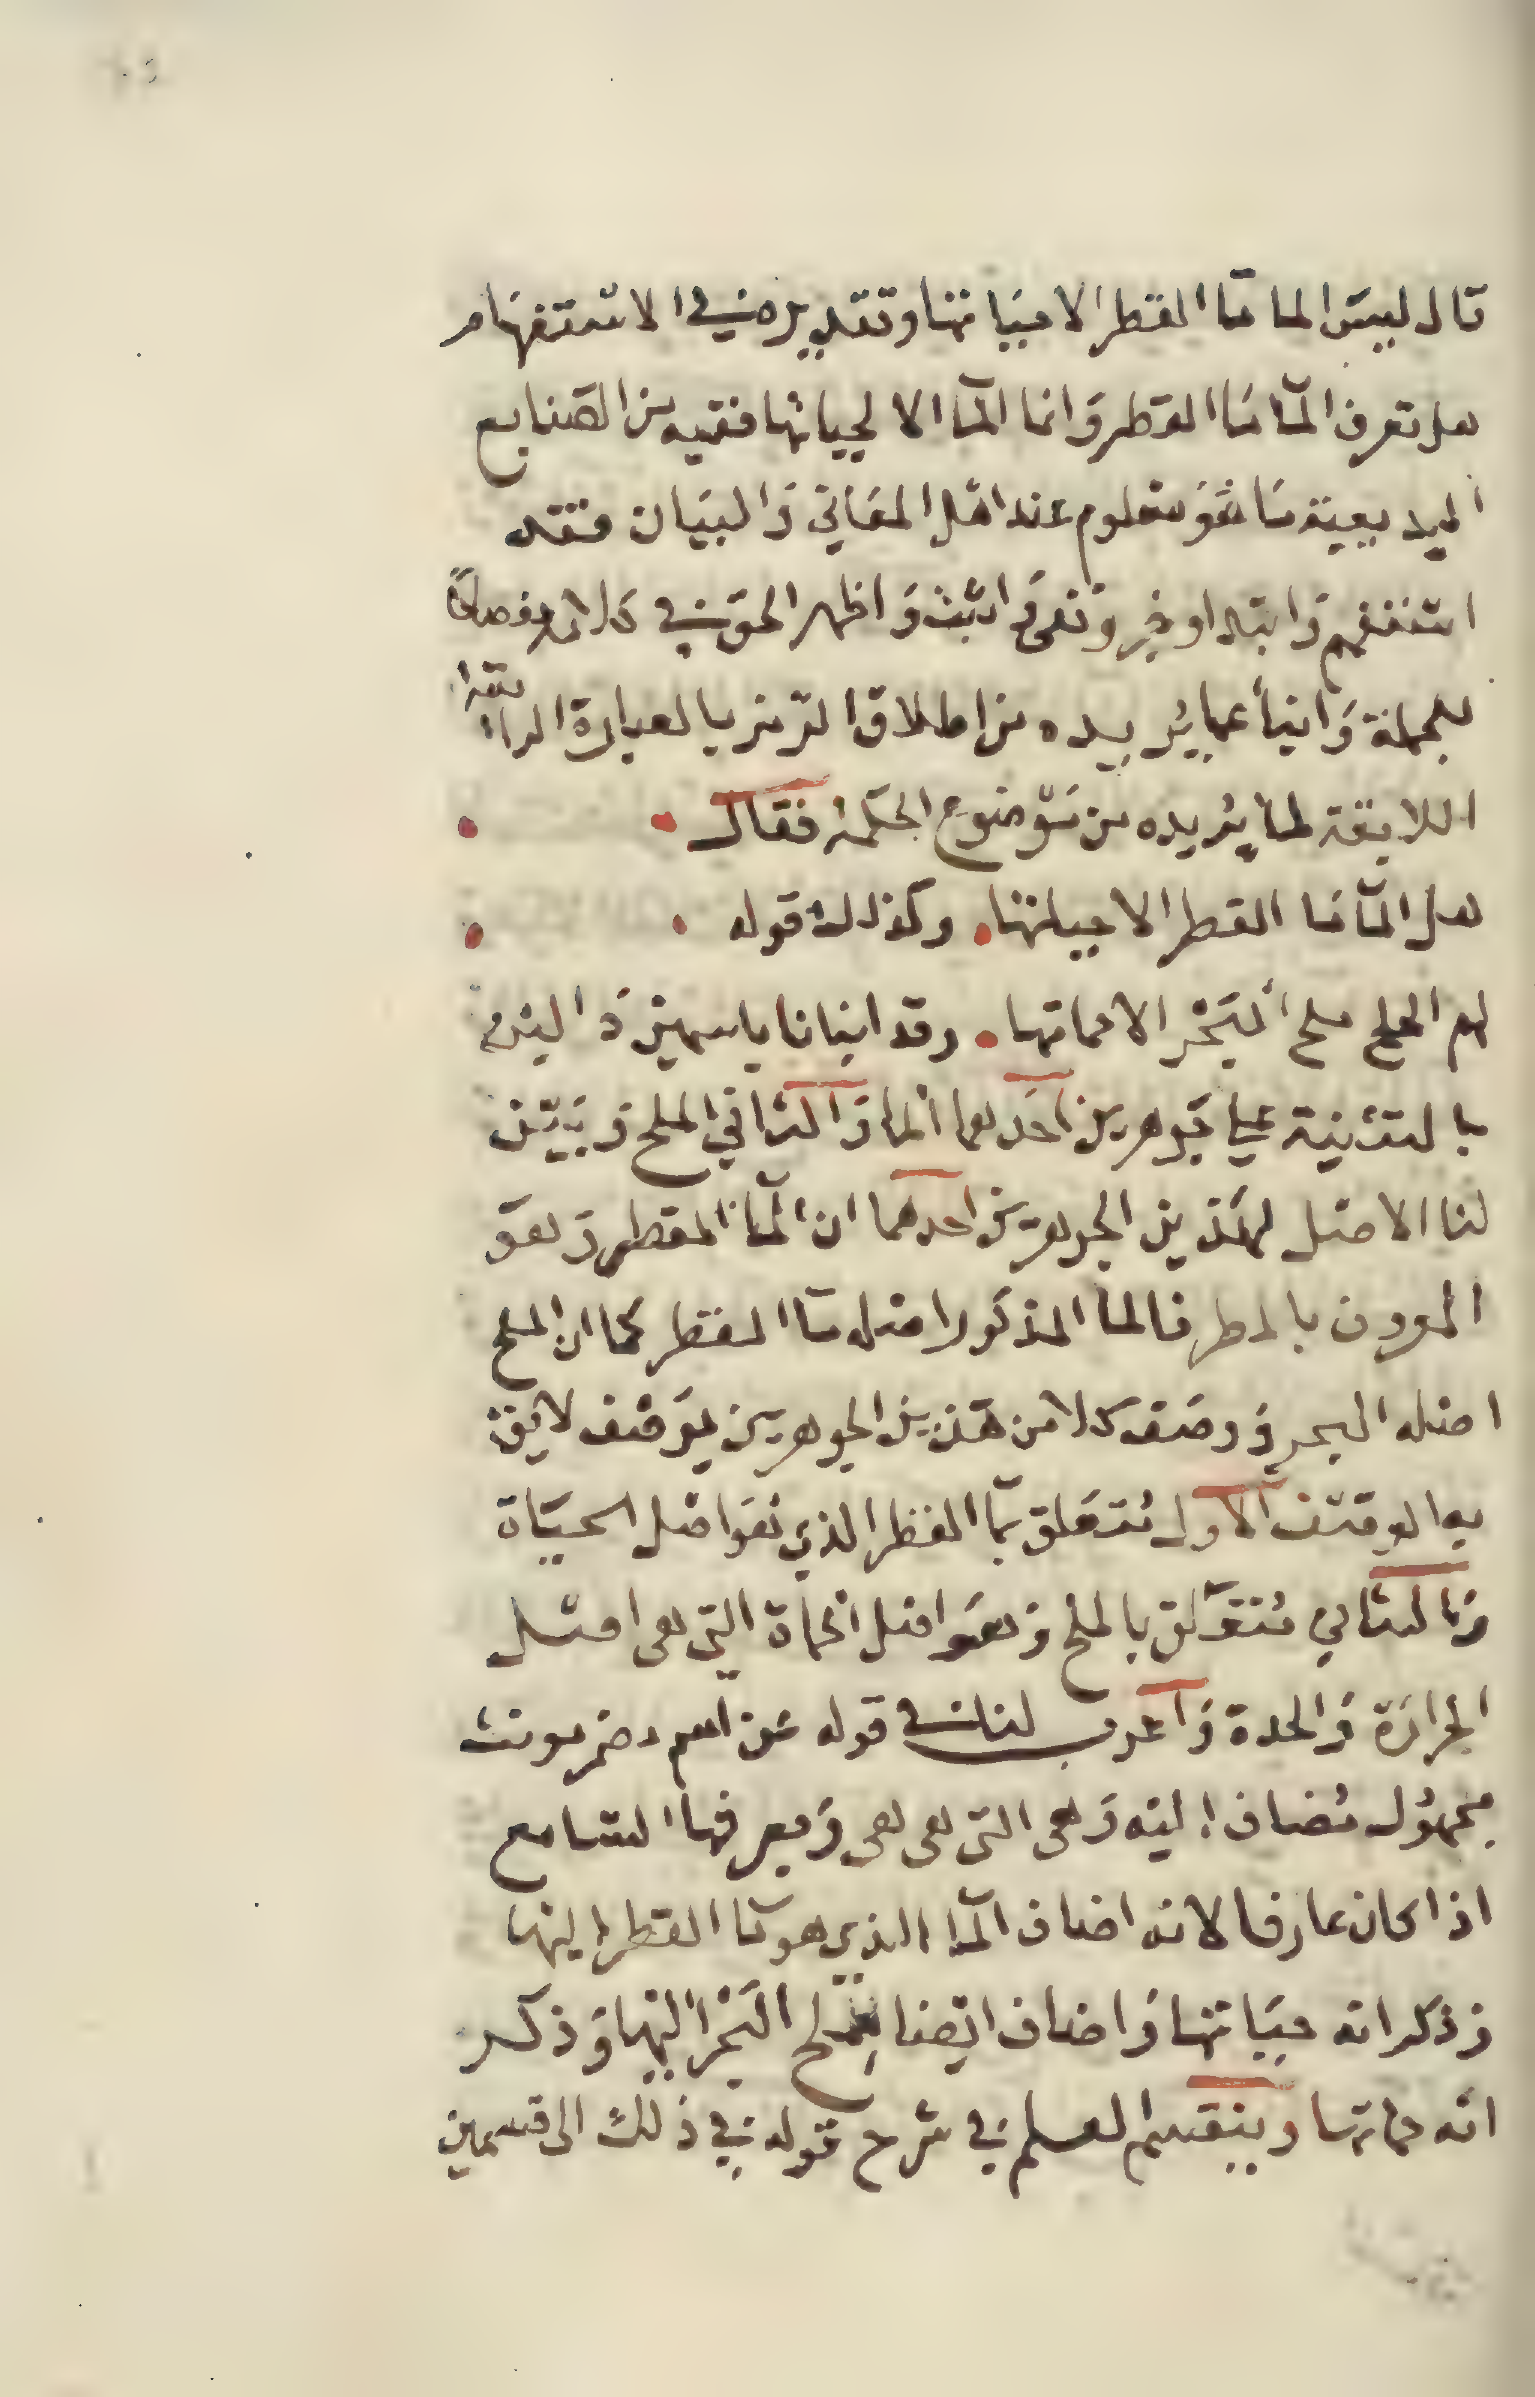 قال ليس الما ما القطر الا حياتها وتقديره في الاستفهام
هل تعرف المآ ما القطر وانما المآ الا لحياتها ففيه من الصنايع
البديعية ما هو معلوم عند اهل المعاني والبيان فقد
استفهم وابتدا وخبر ونفى واثبت واظهر الحق في كلامه مفصلاً
للجملة وانبأ عما يريده من اطلاق الرمز بالعبارة الرائقة
اللايقة لما يريده من موضوع الحكمة فقال
هل المآ ما القطر الا حياتها وكذلك قوله
ام الملح ملح البحر الا مماتها وقد انبانا بالميمين والبزم
بالتثنية على جوهرين احدهما الما والثاني الملح وبين
لنا الاصل لهذين الجوهرين احدهما ان المآ القطر وهو
المعروف بالمطر فالما المذكور اصله ما القطر كما ان الملح
اصله البحر ووصف كلا من هذين الجوهرين بوصف لايق
به الوصف الاول متعلق بمآ القطر الذي هو اصل الحياة
والثاني متعلق بالملح وهو اصل المماة التي هي اصل
الحرارة والحدة واعرب لنا في قوله عن اسم مضمر مونث
مجهول مضاف اليه وهي التي هي هي ويعرفها السامع
اذا كان عارفا لانه اضاف المآ الذي هو مآ القطر اليها
وذكر انه حياتها واضاف ايضا ملح البحر اليها وذكر
انه مماتها وينقسم العلم في شرح قوله في ذلك الى قسمين